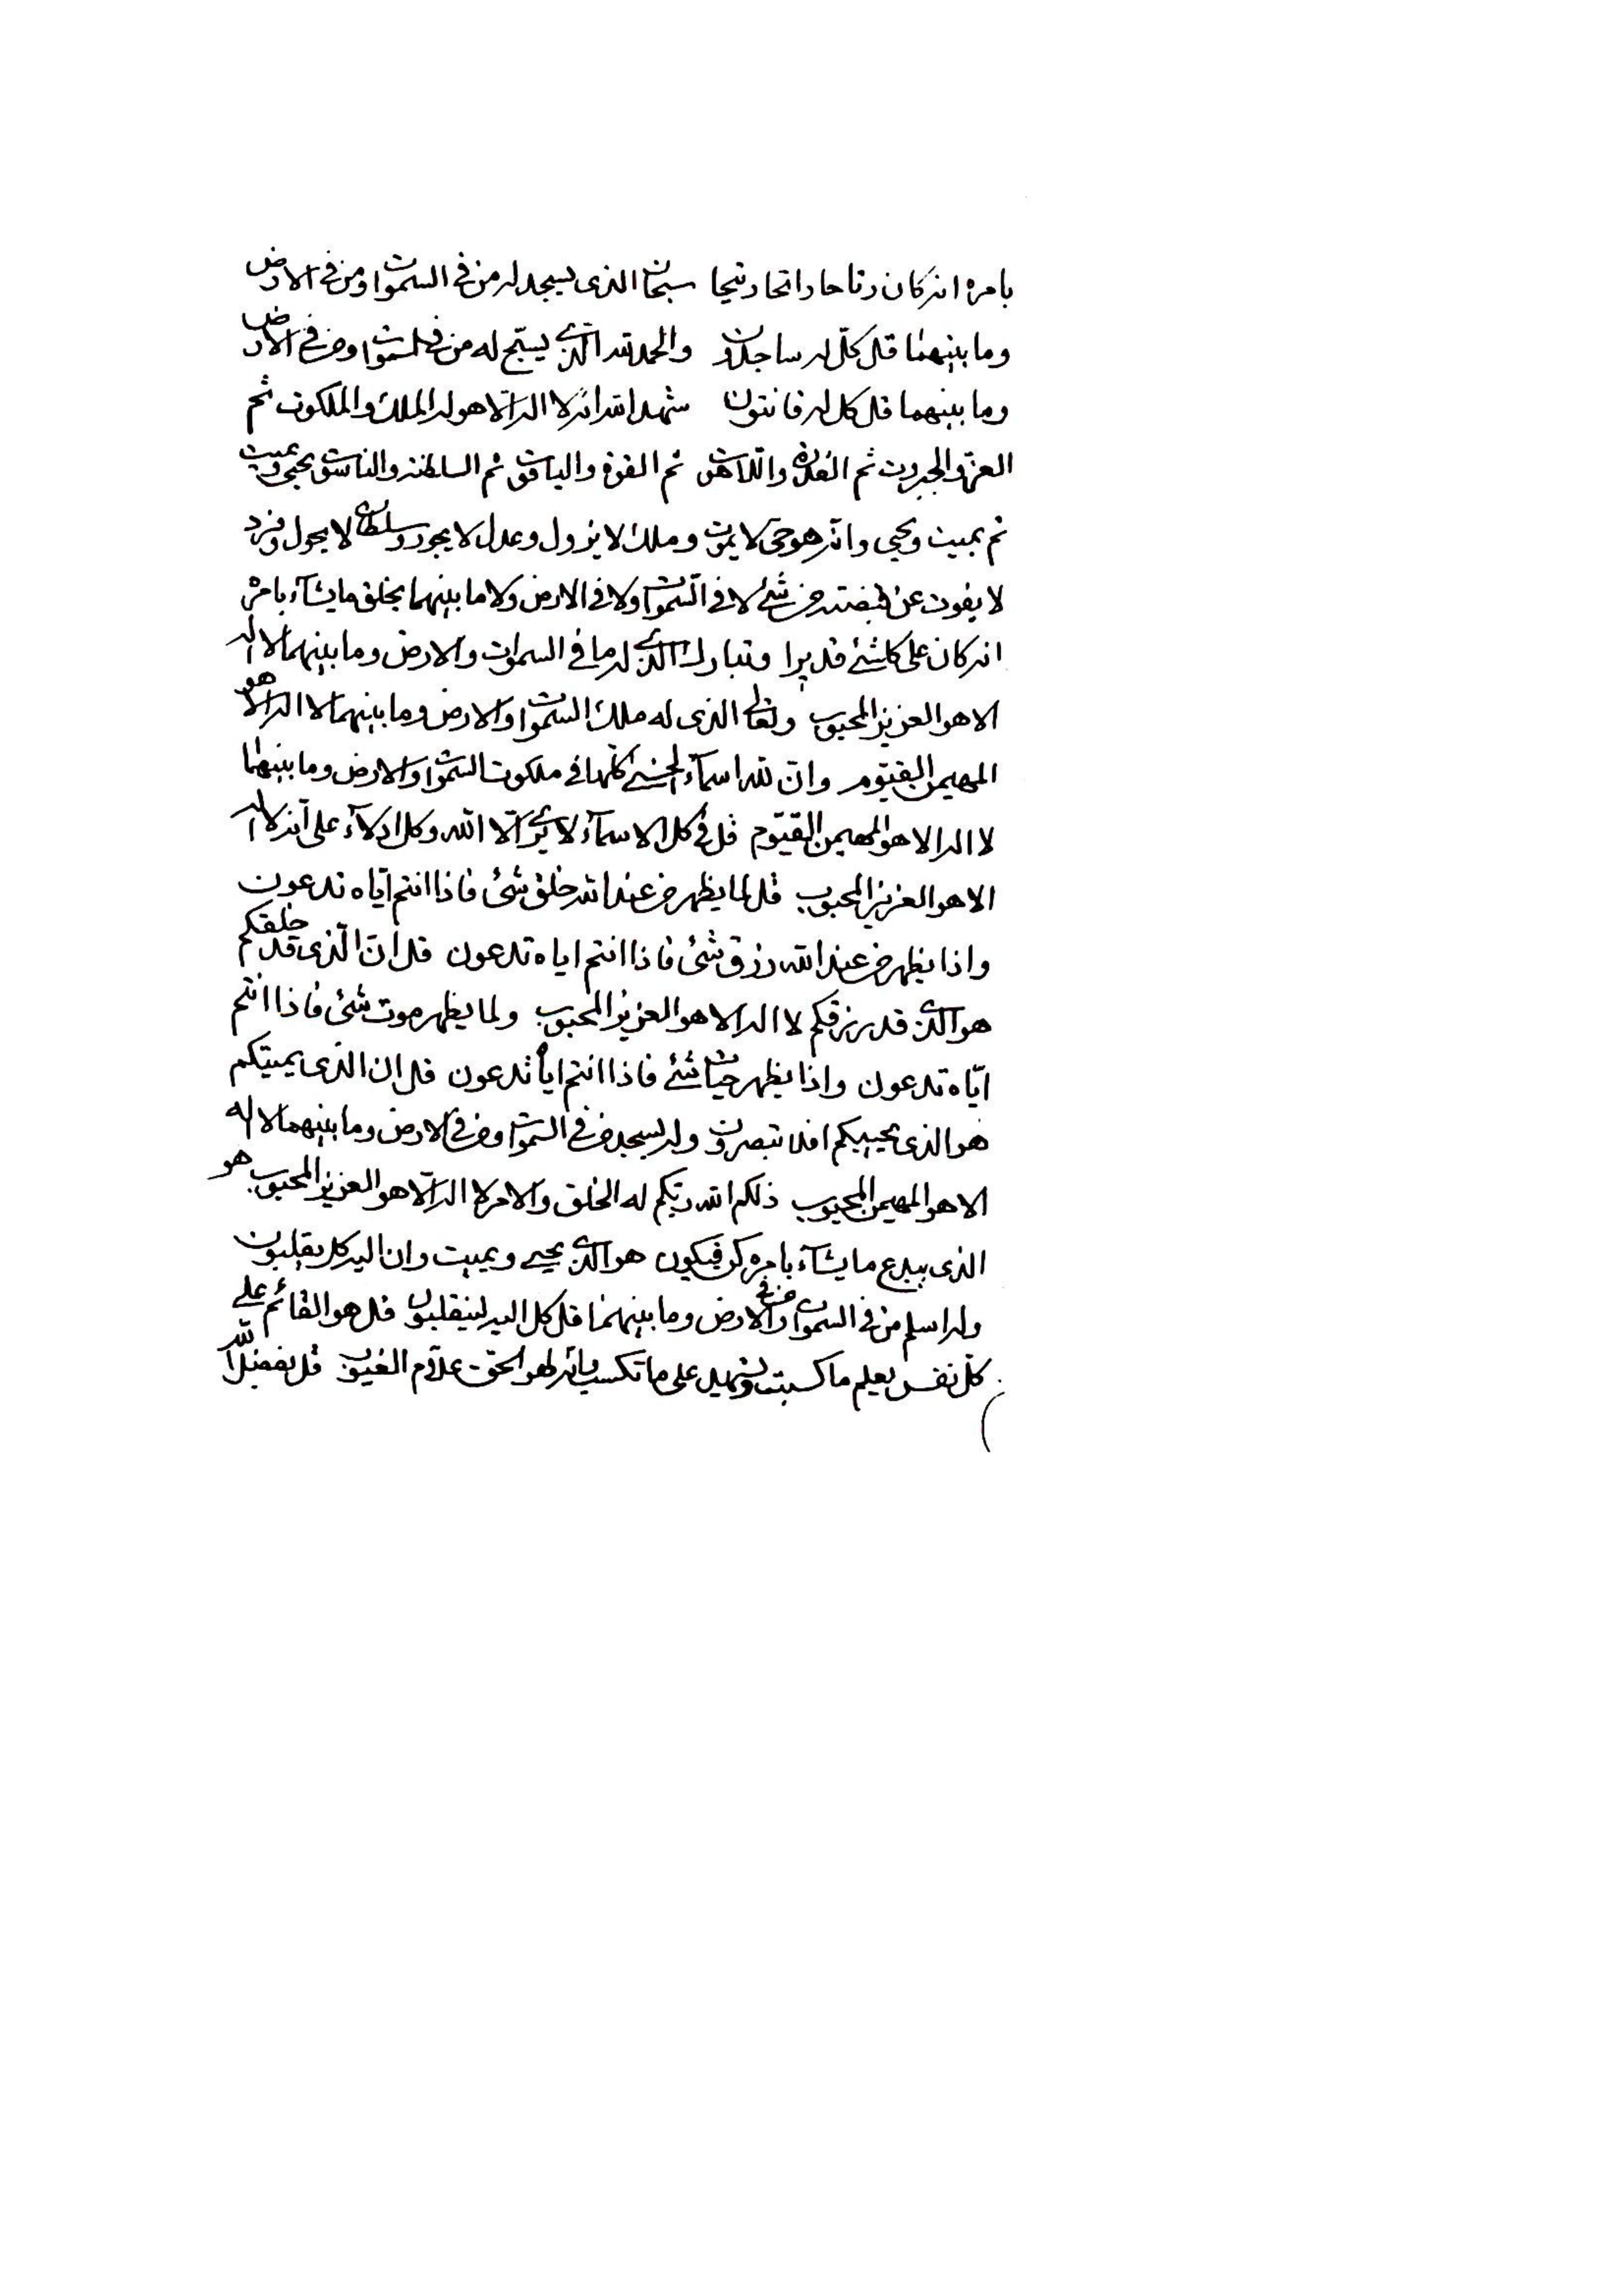 بامره انه كان رتاحا راتحا رتيحا سبحان الذى يسجد له من فى السموات و من فى الارض
وما بينهما قل كلّ له ساجدون والحمد لله الّذى يسبّح له من فى السموات و من فى الارض
وما بينهما قل كل له قانتون شهد الله انّه لا اله الّا هو له الملك والملكوت ثم
العزّ والجبروت ثم القدرة واللاهوت ثم القوة والياقوت ثم السلطنة والناسوت يحيى ويميت
ثم يميت ويحيى وانّه هو حىّ لا يموت وملك لا يزول وعدل لا يجور وسلطان لا يحول وفرد
لا يفوت عن قبضته من شئ لا فى السموات ولا فى الارض ولا ما بينهما يخلق ما يشآء بامره
انه كان على كلشئ قديرا وتبارك الّذى له ما فى السموات والارض وما بينهما لا اله
الا هو العزيز المحبوب وتعالى الذى له ملك السموات والارض وما بينهما لا اله الا هو
المهيمن القيّوم وانّ لله اسمآء الحسنى كلّها فى ملكوت السموات والارض وما بينهما
لا اله الا هو المهيمن القيّوم قل فى كل الاسمآء لا يرى الّا الله وكل ادلآء على انّه لا اله
الا هو العزيز المحبوب قل لما يظهر من عند الله خلق شئ فاذا انتم ايّاه تدعون
واذا يظهر من عند الله رزق شئ فاذا انتم اياه تدعون قل انّ الّذى قد خلقكم
هو الّذى قد رزقكم لا اله الا هو العزيز المحبوب ولما يظهر موت شئ فاذا انتم
ايّاه تدعون واذا يظهر حيات شئ فاذا انتم اياه تدعون قل ان الذى يميتكم
هو الذى يحييكم افلا تبصرون وله يسجد من فى السموات و من فى الارض وما بينهما لا اله
الا هو المهيمن المحبوب ذلكم الله ربّكم له الخلق والامر لا اله الّا هو العزيز المحبوب هو
الذى يبدع ما يشآء بامره كن فيكون هو الّذى يحيى ويميت وان اليه كل يقلبون
وله اسلم من فى السموات و من فى الارض وما بينهما قل كل اليه لينقلبون قل هو القائم على
كلّ نفس يعلم ما كسبت وشهيد على ما تكسب وانّه لهو الحق علّام الغيوب قل بفضل الله